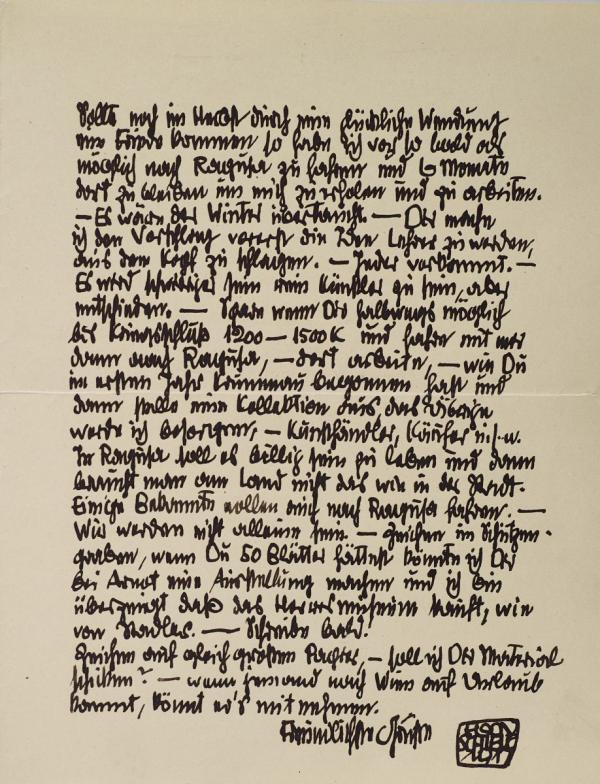 Sollte noch im Herbst durch eine glückliche Wendung
ein Friede kommen so habe ich vor so bald als
möglich nach Ragusa zu fahren und 6 Monate
dort zu bleiben um mich zu erholen und zu arbeiten.
— Es wäre der Winter überhaupt. — Dir mache
ich den Vorschlag vorerst die Idee Lehrer zu werden,
aus dem Kopf zu schlagen. — Jeder verkommt. —
Es wird schwieriger sein rein Künstler zu sein, aber
entschieden. — Spare wenn Dir halbwegs möglich
bis Kriegsschluß 1200 — 1500 K und fahre mit mir
dann nach Ragusa, — dort arbeite, — wie Du
im ersten Jahr Krummau begonnen hast und
dann stelle eine Kollektion aus, das Übrige
werde ich besorgen, — Kunsthändler, Käufer u.s.w.
In Ragusa soll es billig sein zu leben und dann
braucht man am Land nicht das wie in der Stadt.
Einige Bekannte wollen auch nach Ragusa fahren. —
Wir werden nicht alleine sein. — Zeichne im Schützen-
graben, wenn Du 50 Blätter hättest könnte ich Dir
bei Arnot eine Ausstellung machen und ich bin
überzeugt daß das Heeresmuseum kauft, wie
von Stadler. — Schreibe bald!
Zeichne auf gleich großem Papier, — soll ich Dir Material
schicken? — wenn jemand nach Wien auf Urlaub
kommt, könnt er's mitnehmen.
Freundlichste Grüße
EGON
SCHIELE
1917